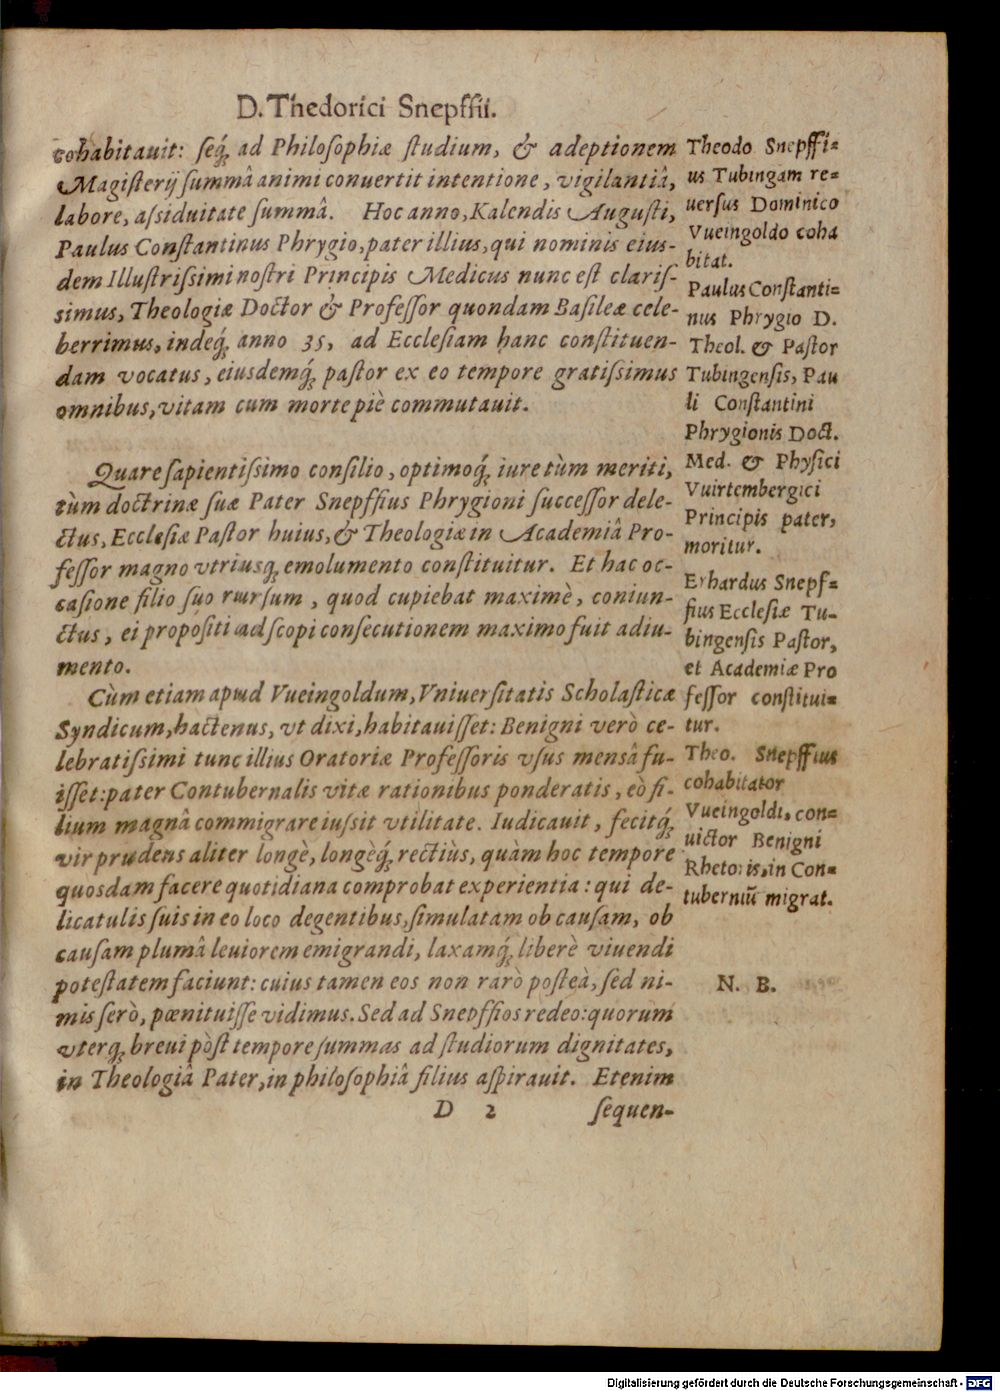 D. Thedorici Snepffii.
cohabitauit: seq́; ad Philosophiæ studium, & adeptionem
Magisterij summâ animi conuertit intentione, vigilantiâ,
labore, assiduitate summâ. Hoc anno, Kalendis Augusti,
Paulus Constantinus Phrygio, pater illius, qui nominis eius-
dem Illustrissimi nostri Principis Medicus nunc est claris-
simus, Theologiæ Doctor & Professor quondam Basileæ cele-
berrimus, indeq́; anno 35, ad Ecclesiam hanc constituen-
dam vocatus, eiusdemq́; pastor ex eo tempore gratissimus
omnibus, vitam cum morte piè commutauit.
Quare sapientissimo consilio, optimoq́; iure tùm meriti,
tùm doctrinæ suæ Pater Snepffius Phrygioni successor dele-
ctus, Ecclesiæ Pastor huius, & Theologiæ in Academiâ Pro-
fessor magno vtriusq; emolumento constituitur. Et hac oc-
casione filio suo rursum, quod cupiebat maximè, coniun-
ctus, ei propositi ad scopi consecutionem maximo fuit adiu-
mento.
Cùm etiam apud Vueingoldum, Vniuersitatis Scholasticæ
Syndicum, hactenus, vt dixi, habitauisset: Benigni verò ce-
lebratissimi tunc illius Oratoriæ Professoris vsus mensâ fu-
isset: pater Contubernalis vitæ rationibus ponderatis, eò fi-
lium magnâ commigrare iussit vtilitate. Iudicauit, fecitq́;
vir prudens aliter longè, longèq́; rectiùs, quàm hoc tempore
quosdam facere quotidiana comprobat experientia: qui de-
licatulis suis in eo loco degentibus, simulatam ob causam, ob
causam plumâ leuiorem emigrandi, laxamq́; liberè viuendi
potestatem faciunt: cuius tamen eos non rarò posteà, sed ni-
mis serò, pœnituisse vidimus. Sed ad Snepffios redeo: quorum
vterq; breui pòst tempore summas ad studiorum dignitates,
in Theologiâ Pater, in philosophiâ filius aspirauit. Etenim
D 2 sequen-
Theodo Snepffi-
us Tubingam re-
uersus Dominico
Vueingoldo coha
bitat.
Paulus Constanti-
nus Phrygio D.
Theol. & Pastor
Tubingensis, Pau
li Constantini
Phrygionis Doct.
Med. & Physici
Vuirtembergici
Principis pater,
moritur.
Erhardus Snepf-
fius Ecclesiæ Tu-
bingensis Pastor,
et Academiæ Pro
fessor constitui-
tur.
Theo. Snepffius
cohabitator
Vueingoldi, con-
uictor Benigni
Rhetoris, in Con-
tuberniū migrat.
N. B.
Digitalisierung gefördert durch die Deutsche Forschungsgemeinschaft - DFG